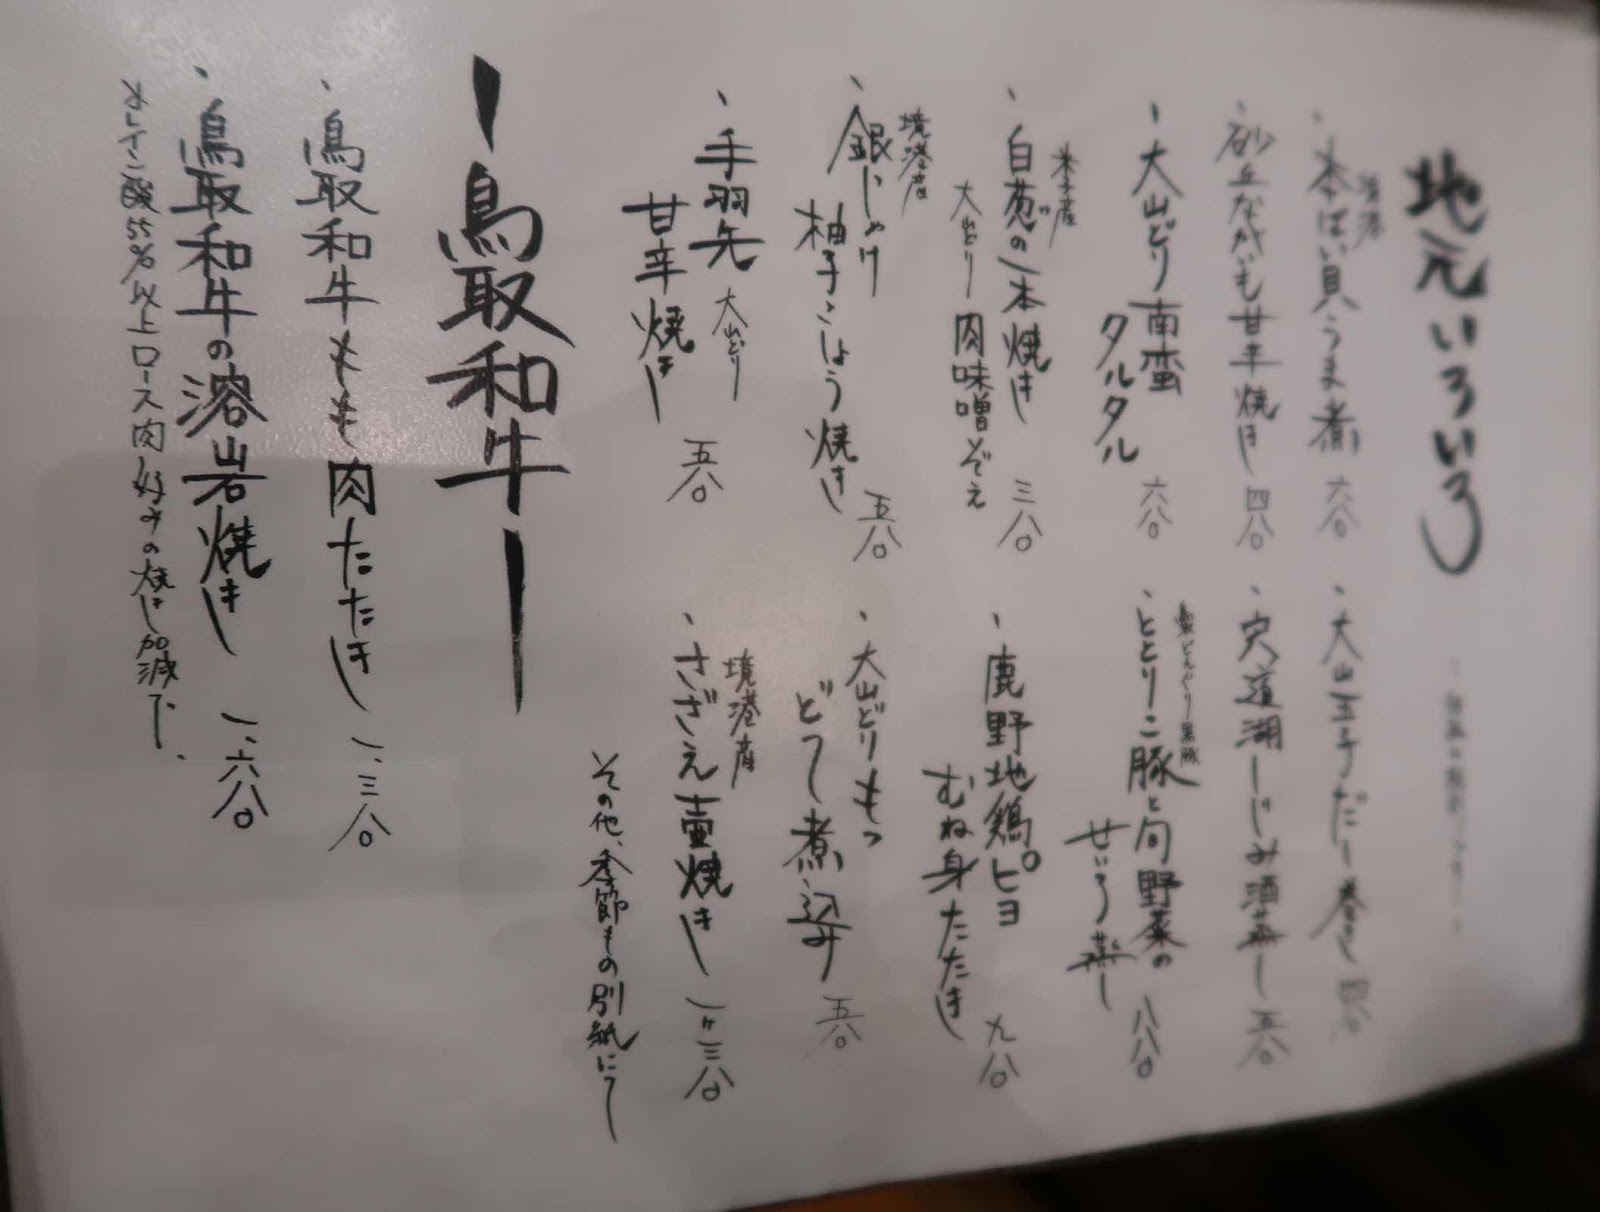 地元いろいろ
境港
本ばい貝うま煮 六八〇
砂丘ながいも甘辛焼き 四八〇
大山どり南蛮
タルタル 六八〇
米子産
白葱の一本焼き
大山どり肉味噌ぞえ 三八〇
境港産
銀じゃけ
柚子こしょう焼き 五八〇
手羽先 大山どり
甘辛焼き 五八〇
大山玉子だし巻き 四八〇
宍道湖しじみ酒蒸し 五八〇
どんぐり黒豚
ととりこ豚と旬野菜の
せいろ蒸し 八八〇
鹿野地鶏ピヨ
むね身たたき 九八〇
大山どりもつ
どて煮込み 五八〇
境港産
さざえ壷焼き 一ヶ三八〇
その他、季節もの別紙にて
ー鳥取和牛ー
鳥取和牛もも肉たたき 一、三八〇
鳥取和牛の溶岩焼き 一、六八〇
オレイン酸55%以上ロース肉好みの焼き加減で、